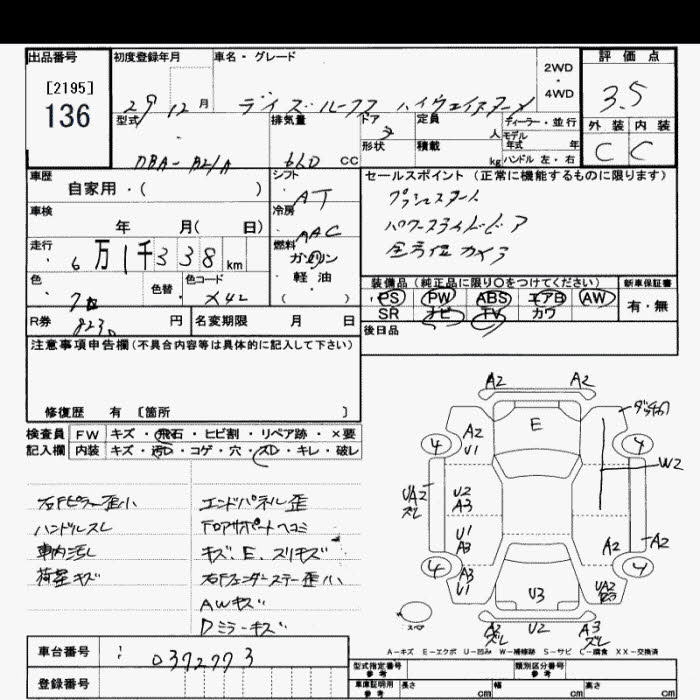 出品番号
[2195]
136
初度登録年月
29 12 月
車名・グレード
デイズルークス ハイウェイスターX
2WD
・
4WD
評価点
3.5
外装 内装
C C
型式
DBA-B21A
排気量
660 CC
ドア
5
形状
定員
人
積載
kg
ディーラー・並行
モデル
年式 年
ハンドル 左・右
車歴
自家用・( )
車検
年 月( 日)
走行
6万1千338km
色
色替
色コード
X42
シフト
AT
冷房
AAC
燃料
ガソリン
・
軽・油
( )
セールスポイント(正常に機能するものに限ります)
プッシュスタート
パワースライドドア
全方位カメラ
装備品(純正品に限り○をつけてください)
PS PW ABS エアB AW
SR ナビ TV カワ
新車保証書
有・無
後日品
R券
8230 円
名変期限 月 日
注意事項申告欄(不具合内容等は具体的に記入して下さい)
修復歴 有 〔箇所 〕
検査員
記入欄
FW キズ・飛石・ヒビ割・リペア跡・×要
内装 キズ・汚れ・コゲ・穴・スレ・キレ・破レ
右Fピラー歪小
ハンドルスレ
車内汚レ
荷室キズ
エンドパネル歪
Fロアサポートヘコミ
キズ、E、スリキズ
右Fフェンダーステー歪小
AWキズ
Dミラーキズ
A2 A2
E
4 A2
U1
4
W2
UA2
ズレ
U2
A3
U1
A3
A2 A2
4 A3
U1
4
UA2
U3
スペア
A2
ズレ
U2
A3
ズレ
A-キズ E-エクボ U-凹み W-補修跡 S-サビ C-腐食 XX-交換済
車台番号
0372773
登録番号
型式指定番号
参考
類別区分番号
参考
車庫証明用
参考
長さ cm
幅 cm
高さ cm